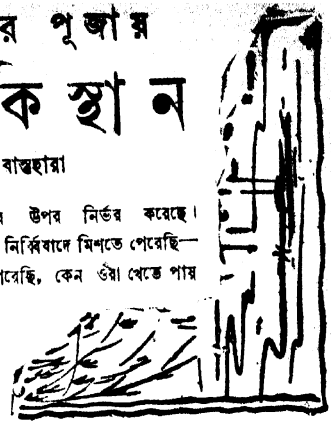 র পূজায়
ক স্থান
বাস্তুহারা
উপর নির্ভর করেছে।
নির্ব্বিবাদে মিশতে পেরেছি—
পেরেছি, কেন ওঁরা খেতে পায়